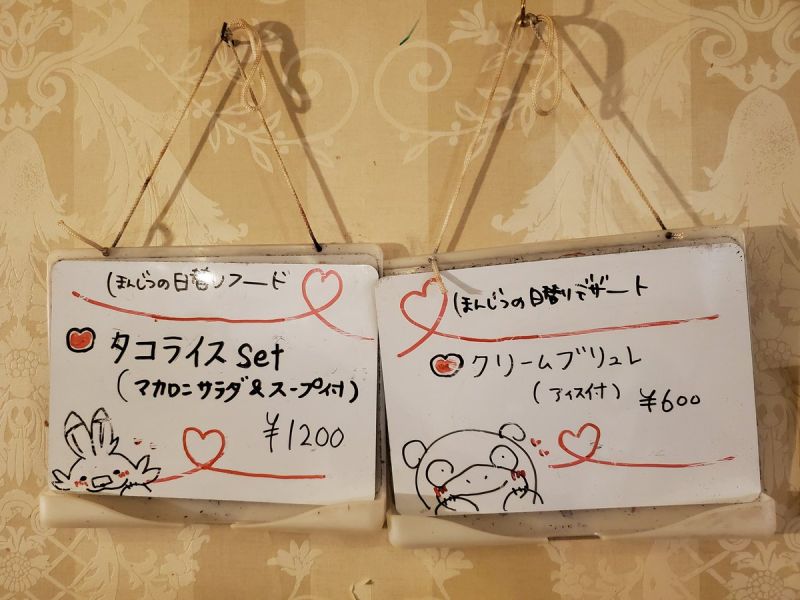 ほんじつの日替りフード
タコライスset
(マカロニサラダ&スープ付)
¥1200
ほんじつの日替りデザート
クリームブリュレ
(アイス付)
¥600